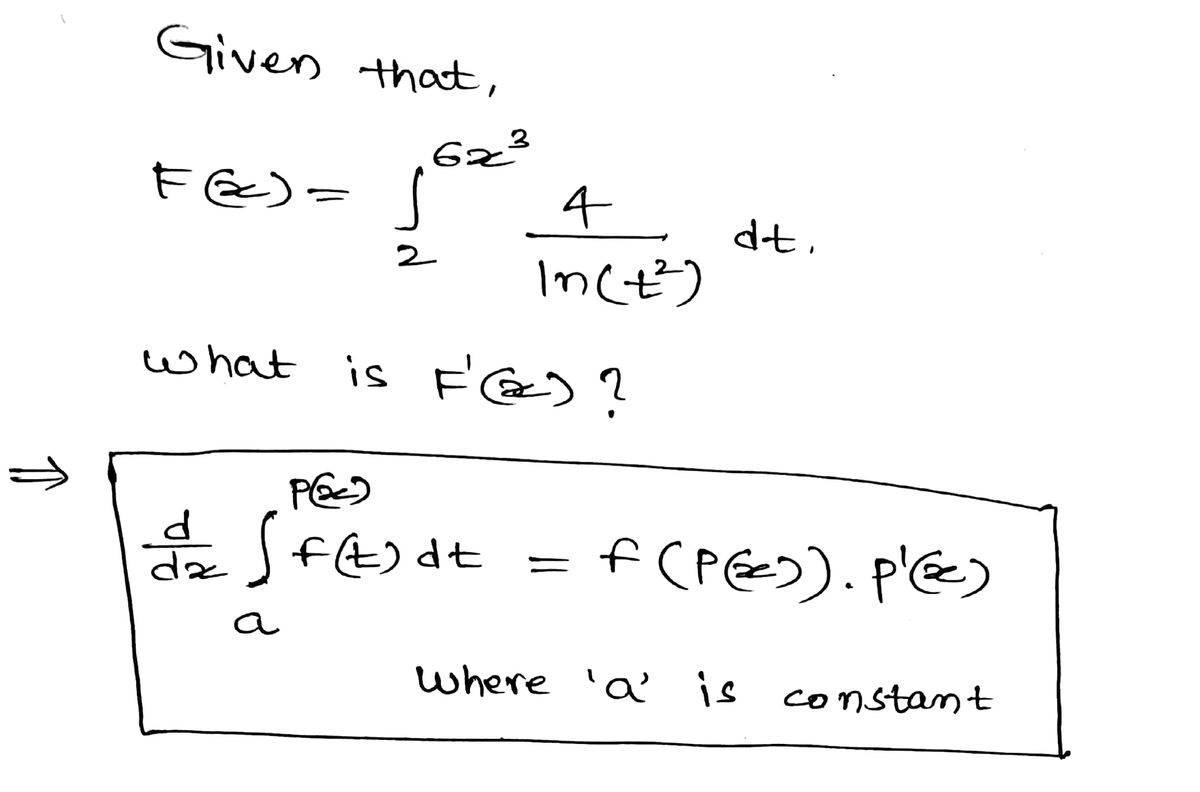 Given that,
F(x) = ∫₂^{6x³} 4/ln(t²) dt.
what is F'(x) ?
⇒ d/dx ∫ₐ^{P(x)} f(t) dt = f(P(x)). p'(x)
where 'a' is constant